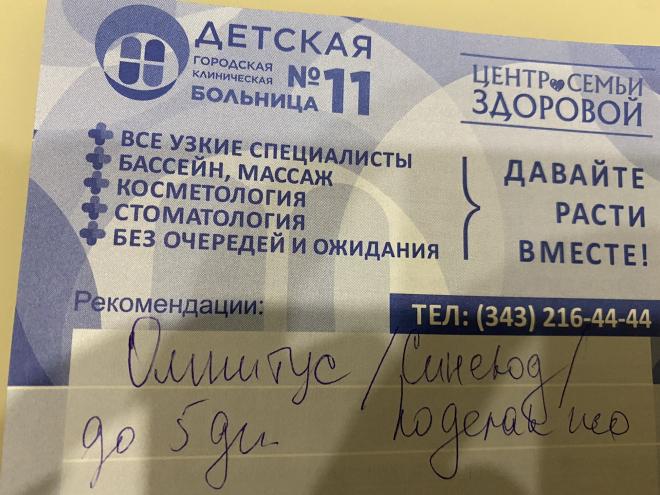 ДЕТСКАЯ
ГОРОДСКАЯ
КЛИНИЧЕСКАЯ
БОЛЬНИЦА №11
ЦЕНТР СЕМЬИ
ЗДОРОВОЙ
ВСЕ УЗКИЕ СПЕЦИАЛИСТЫ
БАССЕЙН, МАССАЖ
КОСМЕТОЛОГИЯ
СТОМАТОЛОГИЯ
БЕЗ ОЧЕРЕДЕЙ И ОЖИДАНИЯ
ДАВАЙТЕ
РАСТИ
ВМЕСТЕ!
Рекомендации:
ТЕЛ: (343) 216-44-44
Омнитус / Синекод /
до 5 дн. Коделак нео